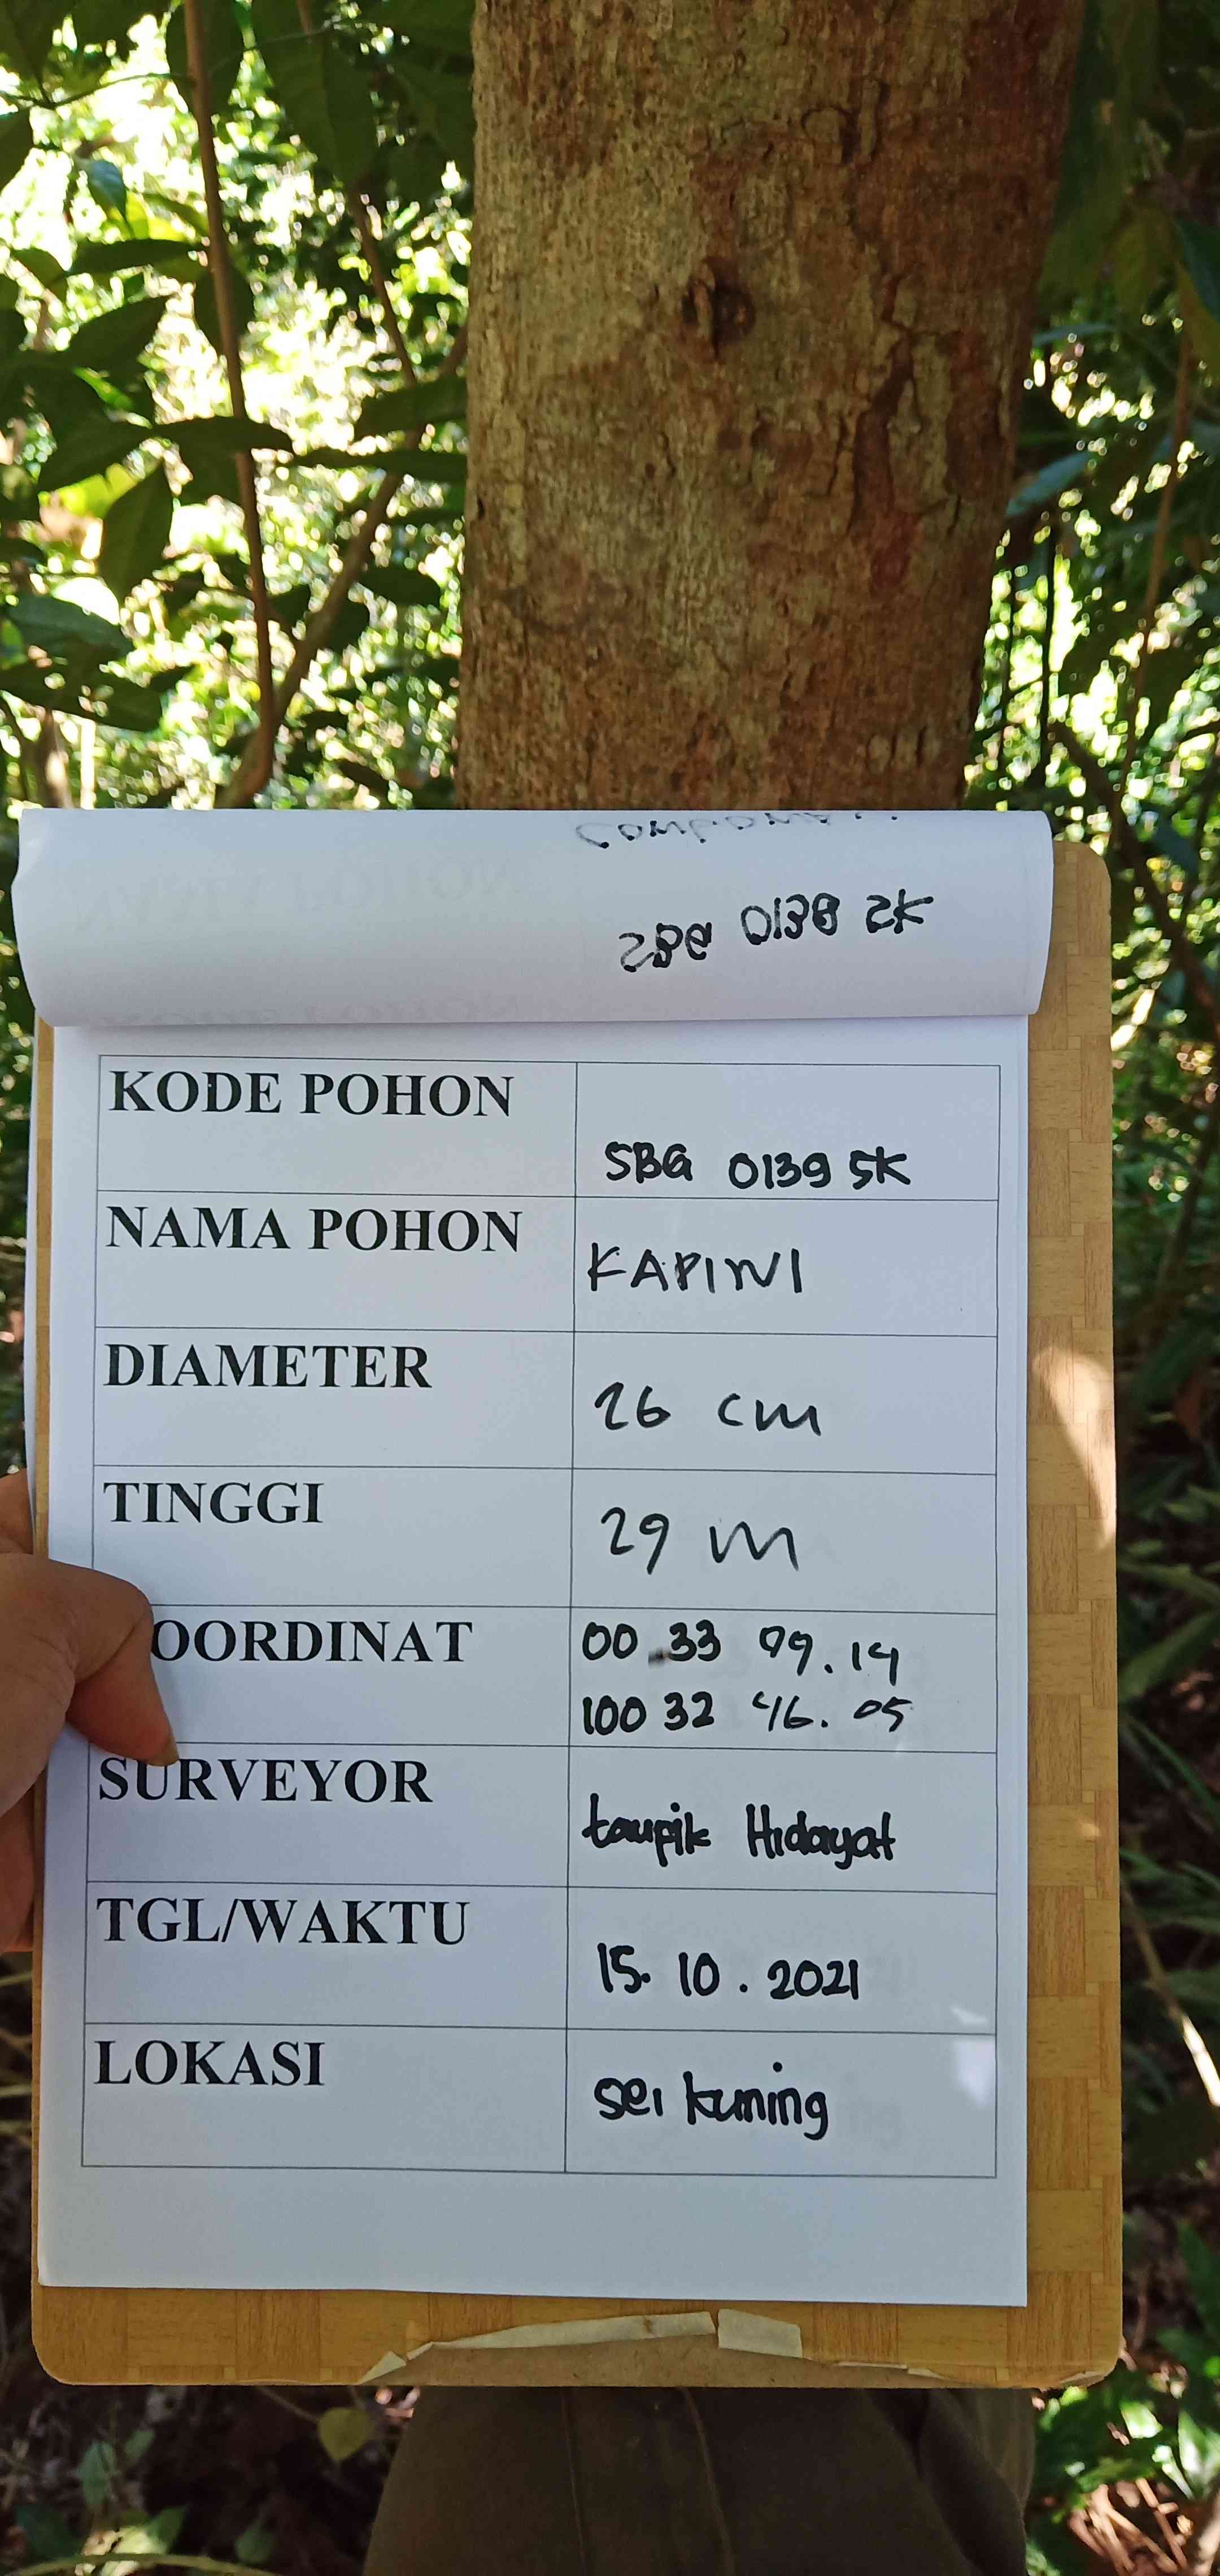 SBG 0138 SK
KODE POHON
SBG 0139 SK
NAMA POHON
KAPINI
DIAMETER
26 cm
TINGGI
29 m
OORDINAT
00.33 99.14
100 32 46.05
SURVEYOR
taupik Hidayat
TGL/WAKTU
15.10.2021
LOKASI
sei kuning